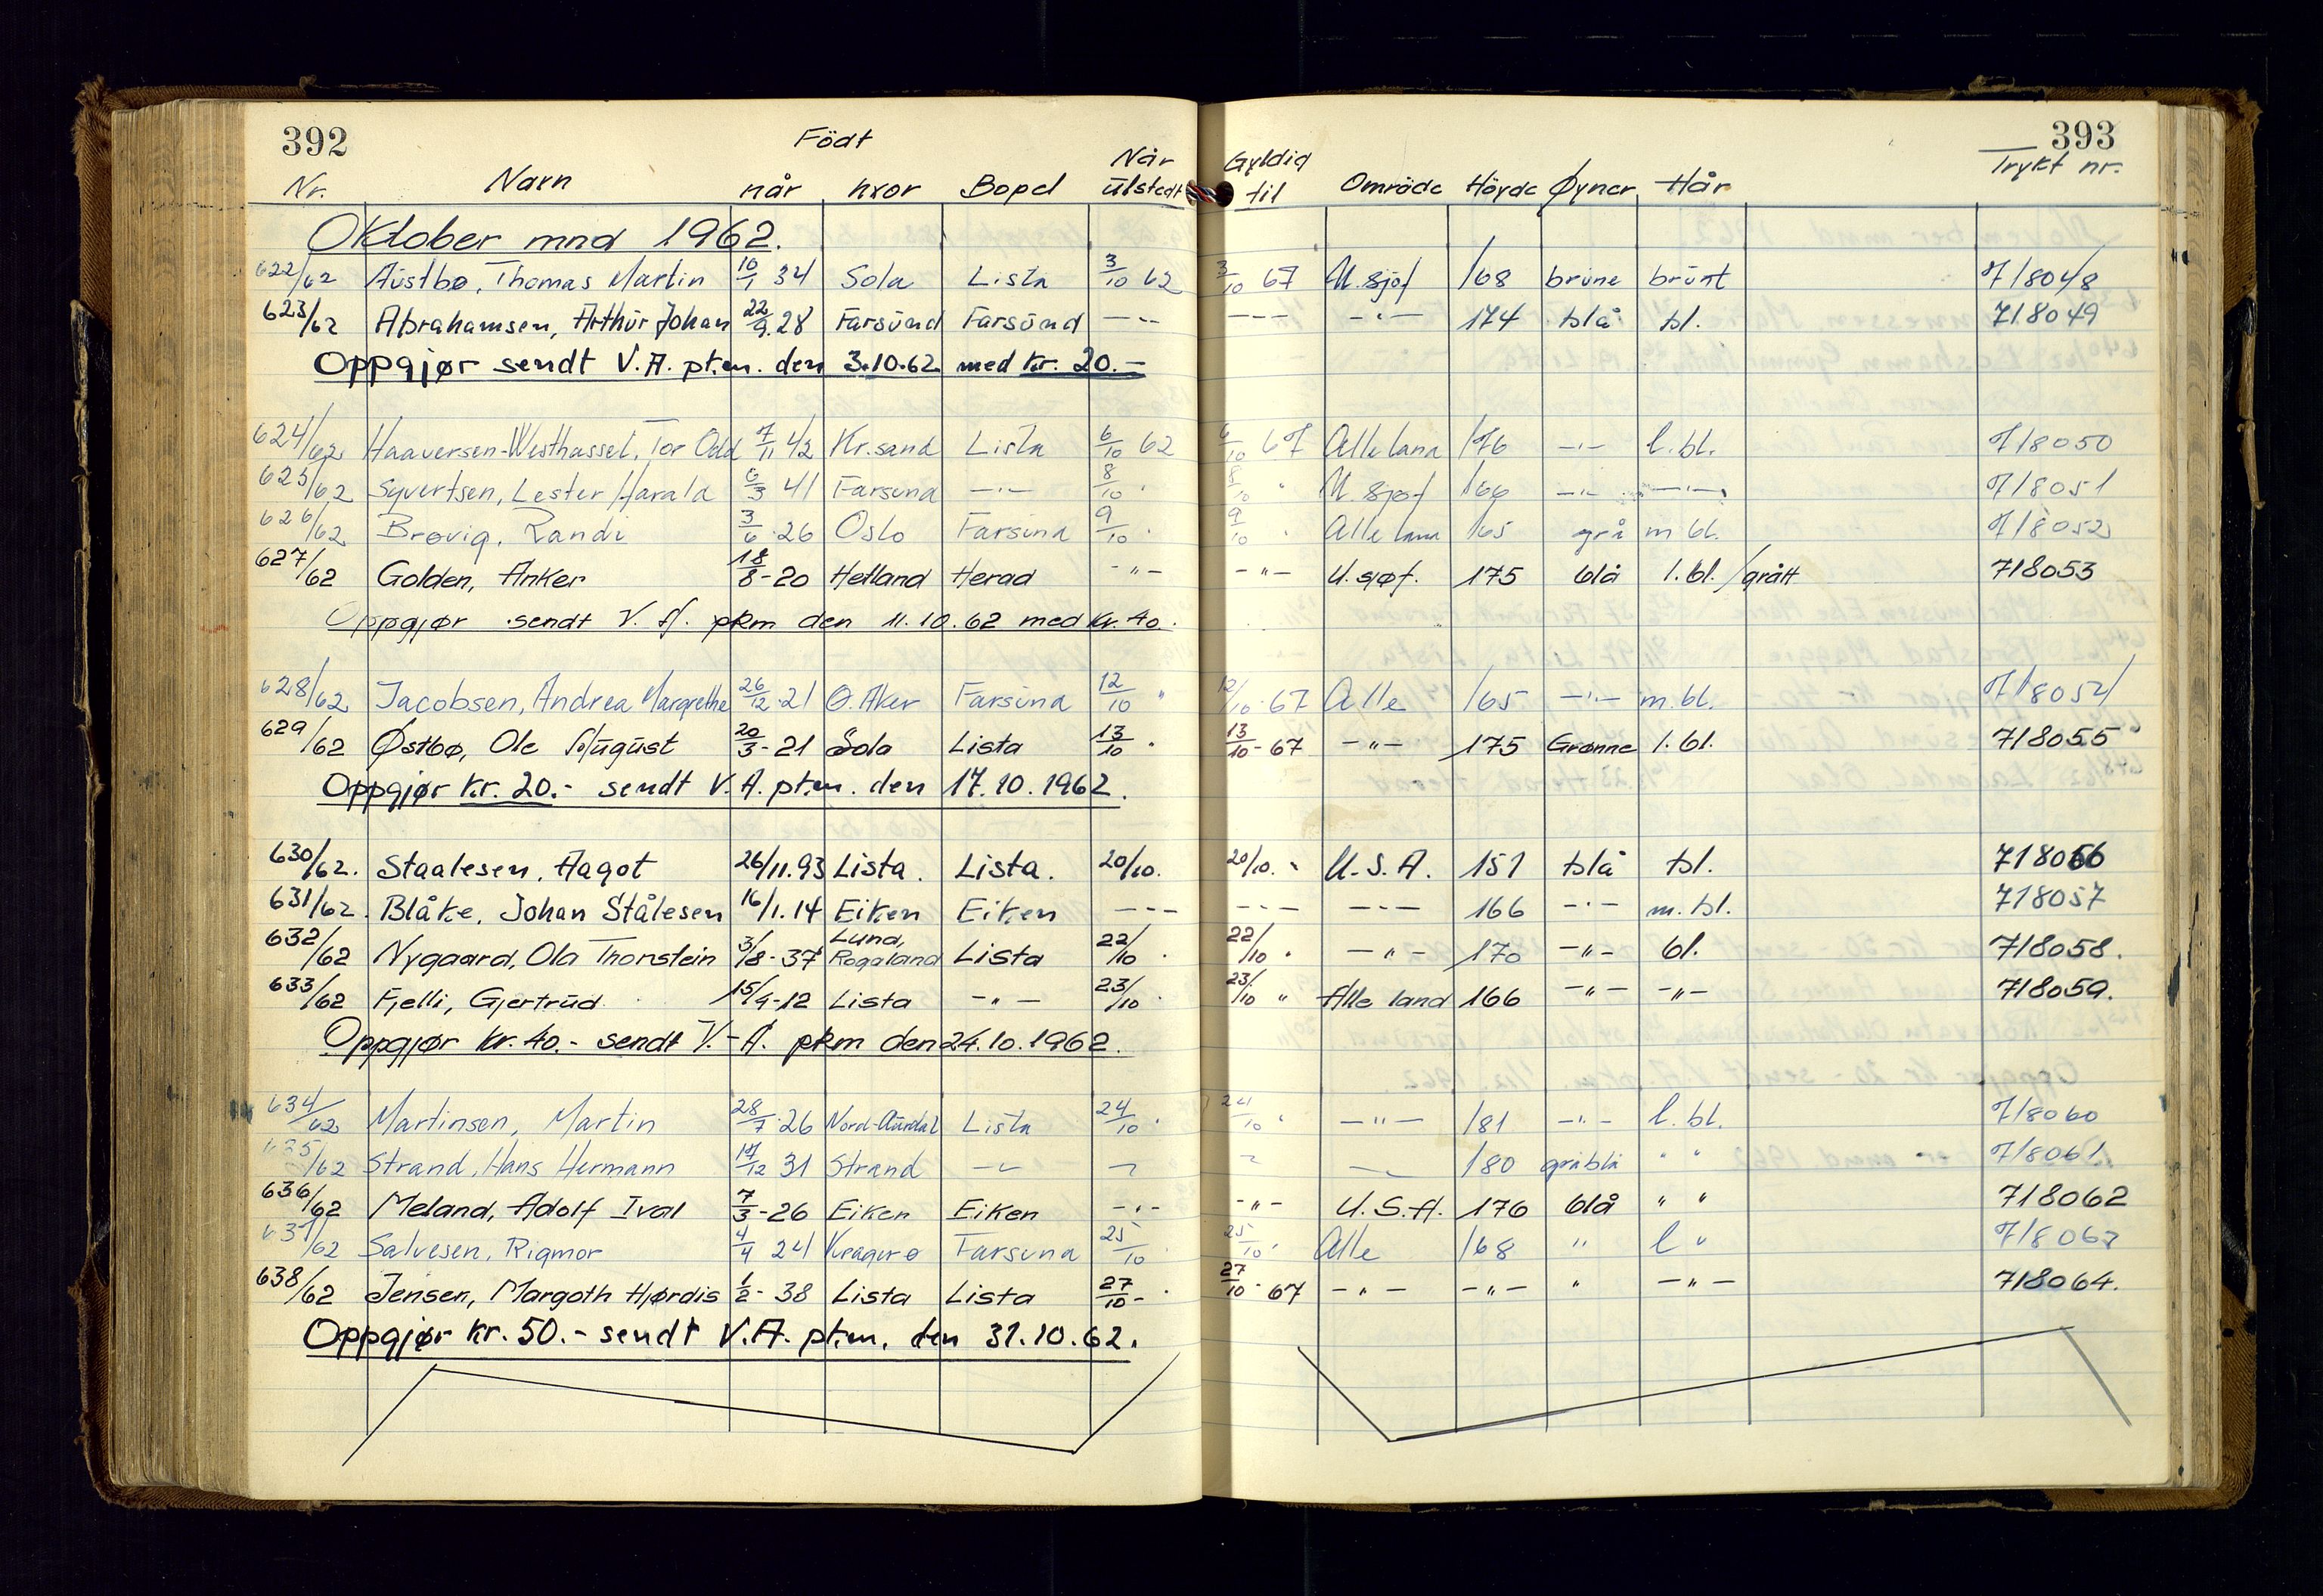 392 Født 393
Nr. Navn når hvor Bopel Når utstedt Gyldig til Område Høyde Øyner Hår Trykt nr.
Oktober mnd 1962.
622/62 Austbø, Thomas Martin 10/1 34 Sola Lista 3/10 62 3/10 67 U. sjøf 168 brune brunt 718048
623/62 Abrahamsen, Arthur Johan 22/9.28 Farsund Farsund -"- -"- -"- 174 blå bl. 718049
Oppgjør sendt V.A. pkm. den 3.10.62 med kr. 20.-
624/62 Haaversen-Westhassel, Tor Odd 7/11 42 Kr.sand Lista 6/10 62 6/10 67 Alle land 176 -"- l.bl. 718050
625/62 Syvertsen, Lester Harald 6/3 41 Farsund -"- 8/10 " 8/10 " U. sjøf 166 -"- -"- 718051
626/62 Brøvig, Randi 3/6.26 Oslo Farsund 9/10 " 9/10 " Alle land 165 grå m bl. 718052
627/62 Golden, Anker 18/8-20 Hetland Herad -"- -"- U.sjøf. 175 blå l.bl./grått 718053
Oppgjør sendt V.A. pkm den 11.10.62 med kr. 40.
628/62 Jacobsen, Andrea Margrethe 26/12.21 Ø.Aker Farsund 12/10 " 12/10.67 Alle 165 -"- m.bl. 718054
629/62 Østbø, Ole August 20/3-21 Sola Lista 13/10 " 13/10-67 -"- 175 Grønne l.bl. 718055
Oppgjør kr. 20.- sendt V.A. pkm. den 17.10.1962.
630/62. Staalesen, Aagot 26/11.93 Lista. Lista. 20/10. 20/10. " U.S.A. 151 blå bl. 718056
631/62. Blåke, Johan Stålesen 16/1.14 Eiken Eiken -"- -"- -"- 166 -"- m.bl. 718057
632/62 Nygaard, Ola Thorstein 3/8-37 Lund, Rogaland Lista 22/10 " 22/10 " -"- 170 -"- bl. 718058.
633/62 Fjelli, Gjertrud 15/9-12 Lista -"- 23/10 " 23/10 " Alle land 166 -"- -"- 718059.
Oppgjør kr. 40.- sendt V.-A. pkm den 24.10.1962.
634/62 Martinsen, Martin 28/7.26 Nord-Aurdal Lista 24/10 " 24/10 " -"- 181 -"- l.bl. 718060
635/62 Strand, Hans Hermann 14/12 31 Strand -"- -"- -"- -"- 180 gråblå " " 718061
636/62 Meland, Adolf Ival 7/3-26 Eiken Eiken -"- -"- U.S.A. 176 blå " " 718062
637/62 Salvesen, Rigmor 4/4 24 Kragerø Farsund 25/10 " 25/10 " Alle 168 " l " 718063
638/62 Jensen, Margoth Hjørdis 1/2-38 Lista Lista 27/10- " 27/10-67 -"- -"- " -"- 718064.
Oppgjør kr. 50.- sendt V.A. pkm. den 31.10.62.